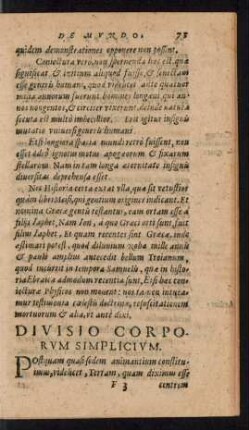 DE MVNDO. 73
quidem demonstrationes opponere non possint.
Coniectura vero, non spernenda hæc est, quæ
significat & initium aliquod fuisse, & senectam
esse generis humani, quod videlicet ante quatuor
millia annorum fuerunt homines longæui, qui an-
nos nongentos, & circiter vixerunt, deinde natura
secuta est multò imbecillior. Tot igitur insignis
mutatio viuus est generis humani.
Et si longiora spacia mundi retrò fuissent, non
esset adeò ignotus motus apogæorum & fixarum
stellarum. Nam in tam longa æternitate insignis
diuersitas deprehensa esset.
Nec Historia certa extat vlla, quæ sit vetustior
quàm libri Mosis, qui origines indicant. Et
nomina Græca gentis testantur, eam ortam esse à
filijs Iaphet, Nam Ioni, à quo Græci orti sunt, fuit
filius Iaphet, Et quàm recentes sint Græci, inde
æstimari potest, quòd diluuium Noha mille annis
& paulò ampliùs antecedit bellum Troianum,
quod incidit in tempora Samuelis, quæ in histo-
ria Ebraica admodum recentia sunt, Etsi hæc con-
iectura Physica non mouent: nos tamen intuea-
mur testimonia cælestis doctrinæ, resuscitationem
mortuorum & alia, vt antè dixi.
DIVISIO CORPO-
RVM SIMPLICIVM.
Postquam quasi sedem animantium constitu-
imus, videlicet, Terram, quam diximus esse
F 3 centrum